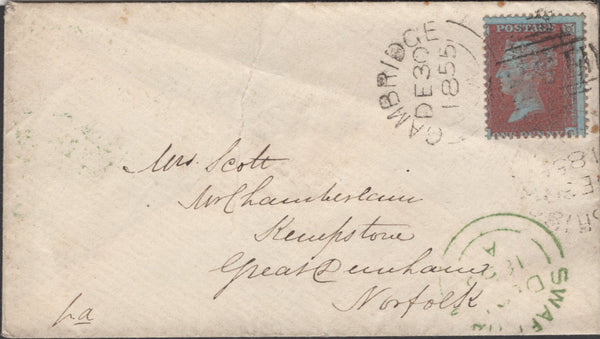 POSTAGE
CAMBRIDGE
DE 30
1855
Mrs. Scott
Mr Chamberlain
Kempstone
Great Dunham
Norfolk
pa
SWAFF